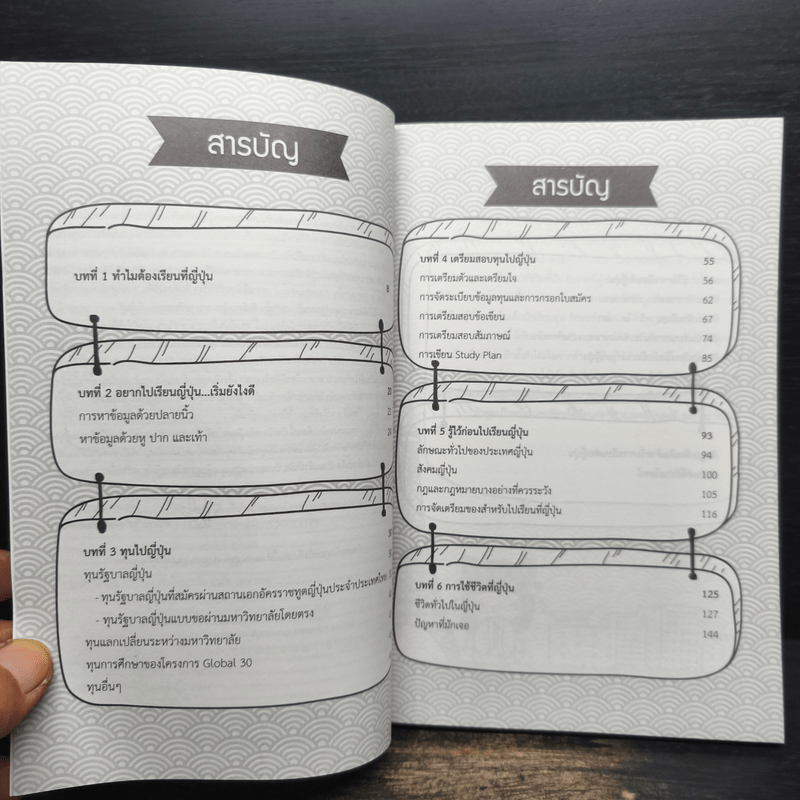 สารบัญ
บทที่ 1 ทำไมต้องเรียนที่ญี่ปุ่น 8
บทที่ 2 อยากไปเรียนญี่ปุ่น...เริ่มยังไงดี 20
การหาข้อมูลด้วยปลายนิ้ว
หาข้อมูลด้วยหู ปาก และเท้า
บทที่ 3 ทุนไปญี่ปุ่น
ทุนรัฐบาลญี่ปุ่น
- ทุนรัฐบาลญี่ปุ่นที่สมัครผ่านสถานเอกอัครราชทูตญี่ปุ่นประจำประเทศไทย
- ทุนรัฐบาลญี่ปุ่นแบบขอผ่านมหาวิทยาลัยโดยตรง
ทุนแลกเปลี่ยนระหว่างมหาวิทยาลัย
ทุนการศึกษาของโครงการ Global 30
ทุนอื่นๆ
สารบัญ
บทที่ 4 เตรียมสอบทุนไปญี่ปุ่น 55
การเตรียมตัวและเตรียมใจ 56
การจัดระเบียบข้อมูลทุนและการกรอกใบสมัคร 62
การเตรียมสอบข้อเขียน 67
การเตรียมสอบสัมภาษณ์ 74
การเขียน Study Plan 85
บทที่ 5 รู้ไว้ก่อนไปเรียนญี่ปุ่น 93
ลักษณะทั่วไปของประเทศญี่ปุ่น 94
สังคมญี่ปุ่น 100
กฎและกฎหมายบางอย่างที่ควรระวัง 105
การจัดเตรียมของสำหรับไปเรียนที่ญี่ปุ่น 116
บทที่ 6 การใช้ชีวิตที่ญี่ปุ่น 125
ชีวิตทั่วไปในญี่ปุ่น 127
ปัญหาที่มักเจอ 144